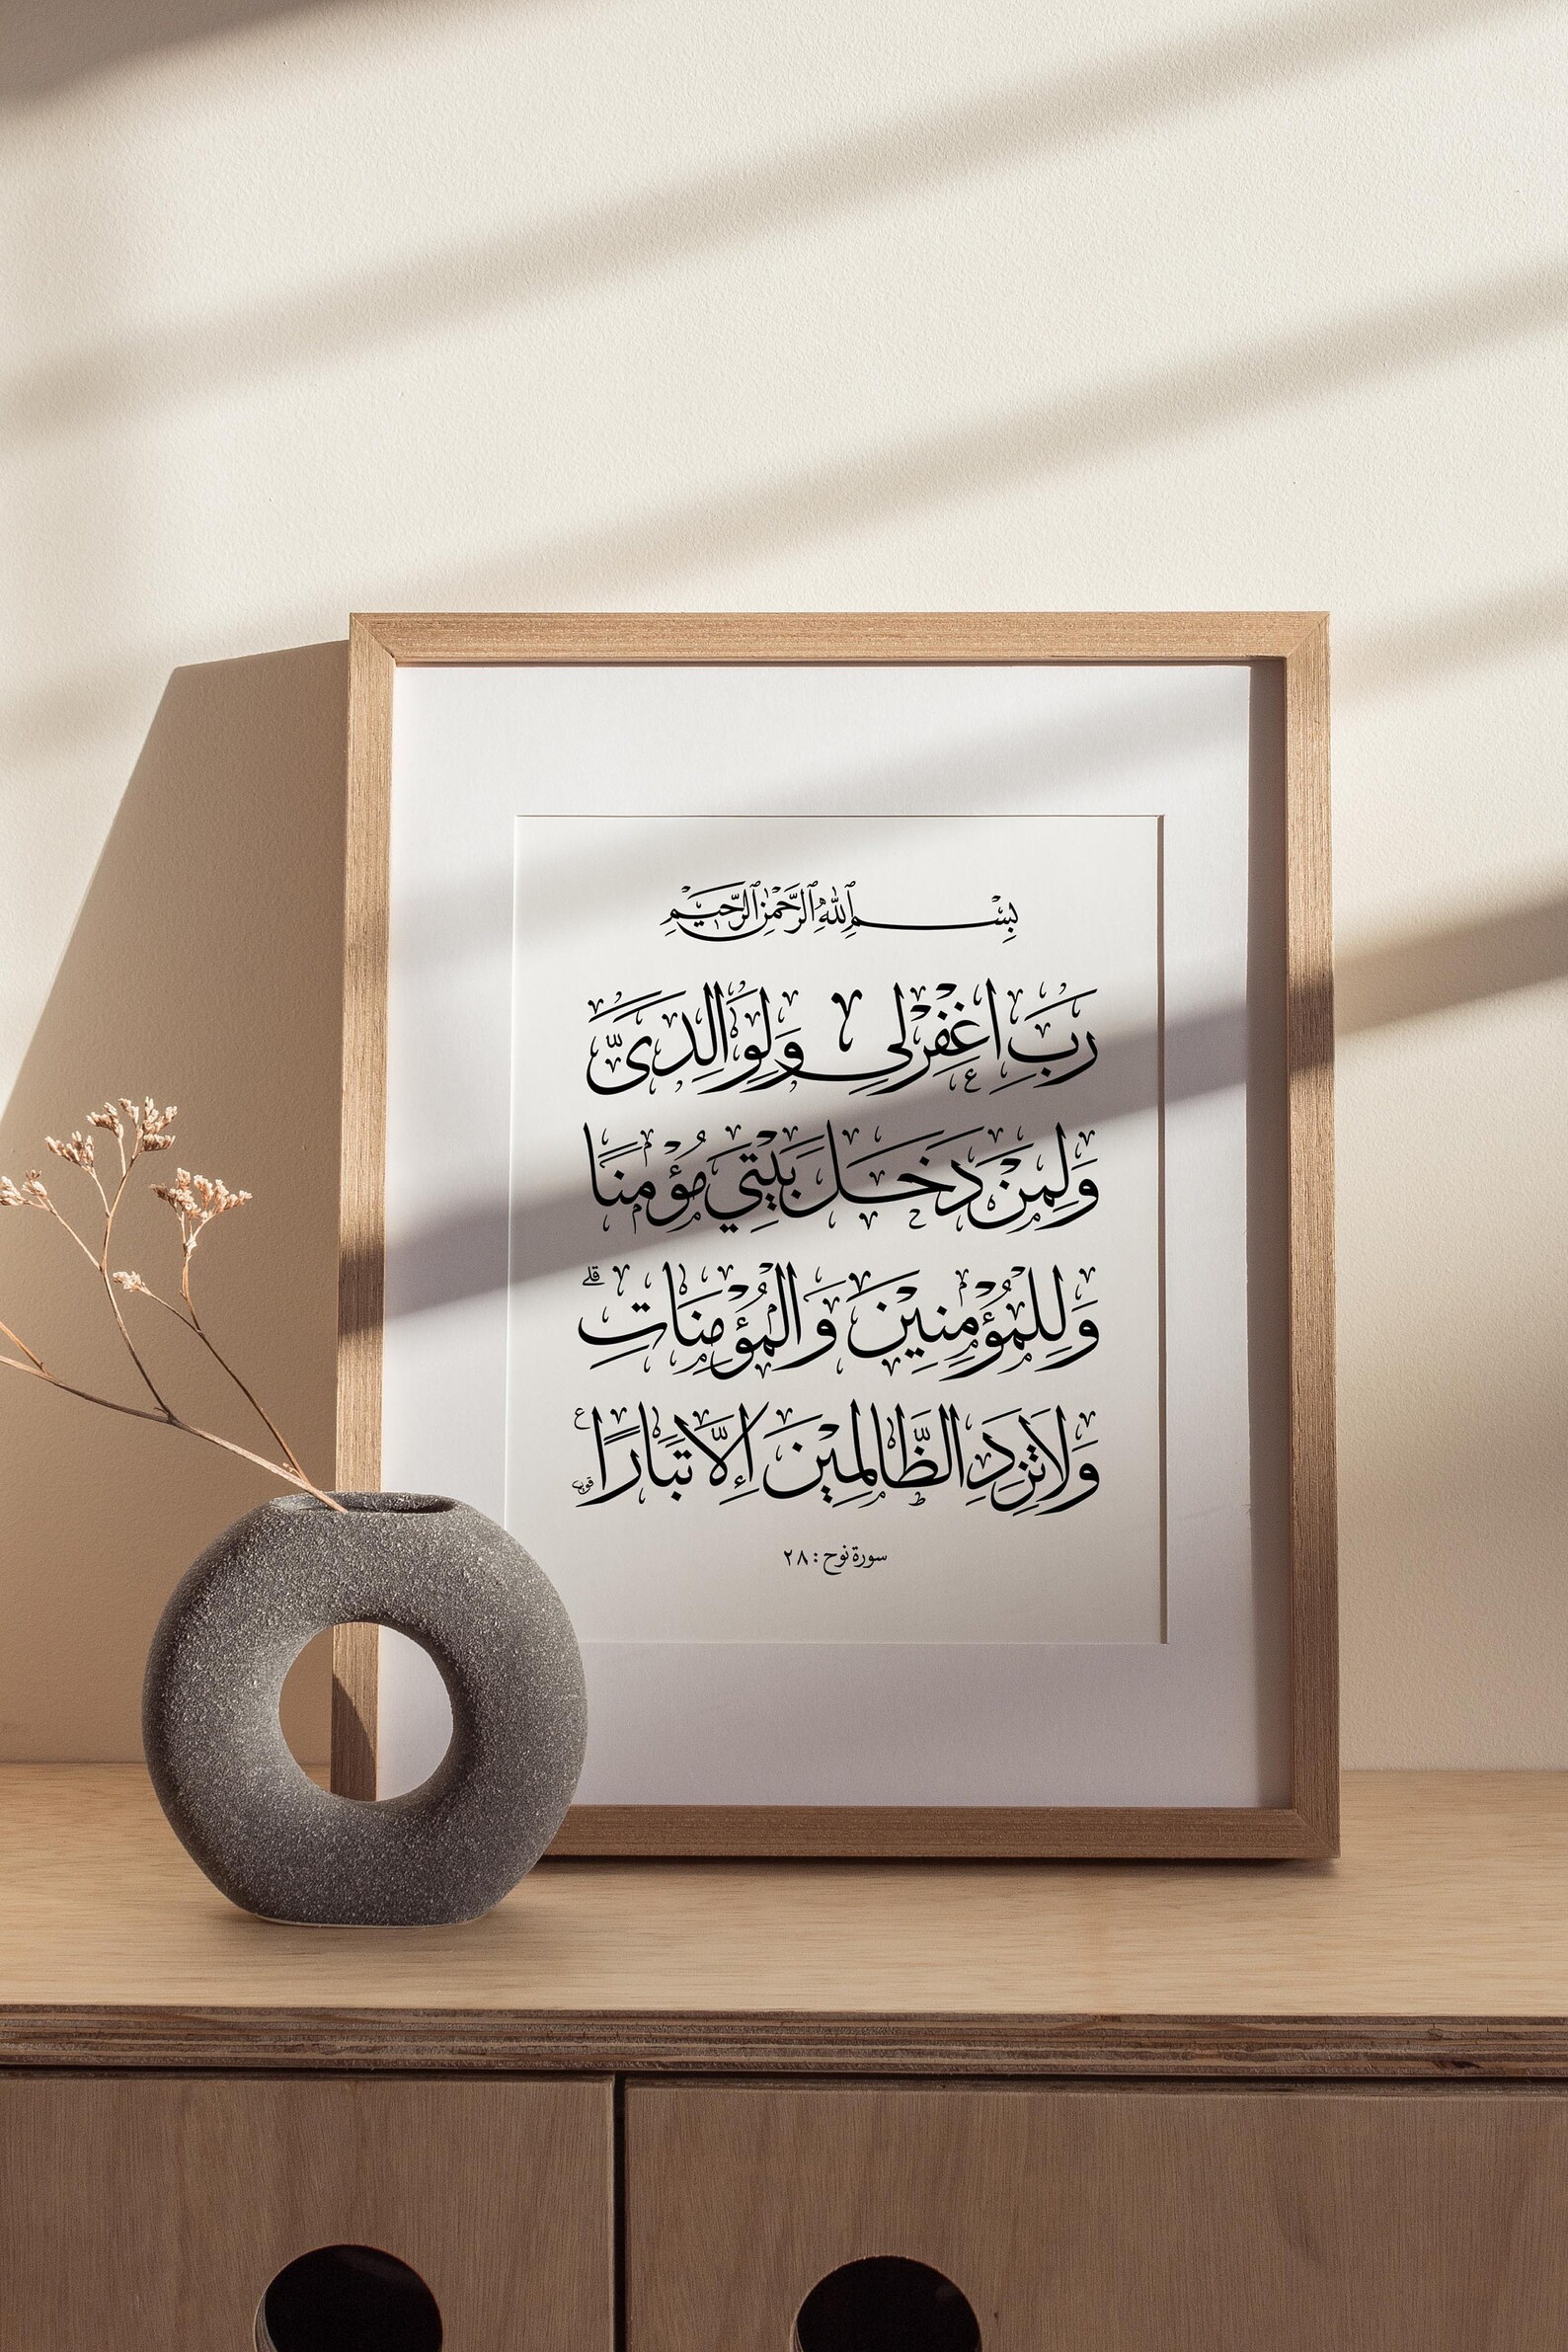 بِسْمِ اللهِ الرَّحْمٰنِ الرَّحِيْمِ
رَبِّ اغْفِرْ لِى وَلِوَالِدَىَّ
وَلِمَنْ دَخَلَ بَيْتِيَ مُؤْمِنًا
وَلِلْمُؤْمِنِيْنَ وَالْمُؤْمِنَاتِ ۗ
وَلَا تَزِدِ الظَّالِمِيْنَ اِلَّا تَبَارًا
سورة نوح : ٢٨